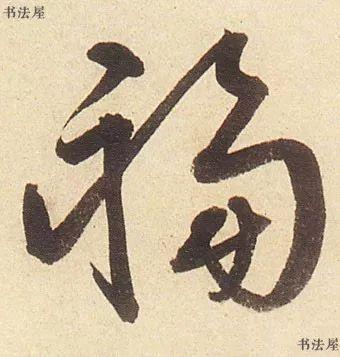 书法屋
福
书法屋